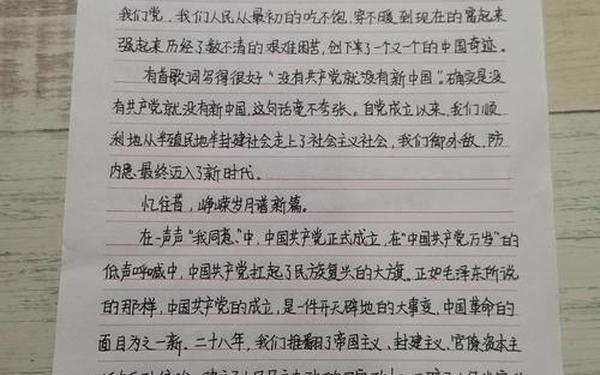 我们党,我们人民从最初的吃不饱,穿不暖到现在的富起来
强起来历经了数不清的艰难困苦,创下来了一个又一个的中国奇迹。
有首歌词写得很好“没有共产党就没有新中国”。确实是没
有共产党就没有新中国,这句话毫不夸张。自党成立以来,我们顺
利地从半殖民地半封建社会走上了社会主义社会,我们御外敌,防
内患最终迈入了新时代。
忆往昔,峥嵘岁月谱新篇。
在一声声“我同意”中,中国共产党正式成立,在“中国共产党万岁”的
低声呼喊中,中国共产党扛起了民族复兴的大旗。正如毛泽东所说
的那样,中国共产党的成立,是一件开天辟地的大事变,中国革命的
面目为之一新。二十八年,我们推翻了帝国主义、封建主义、官僚资本主